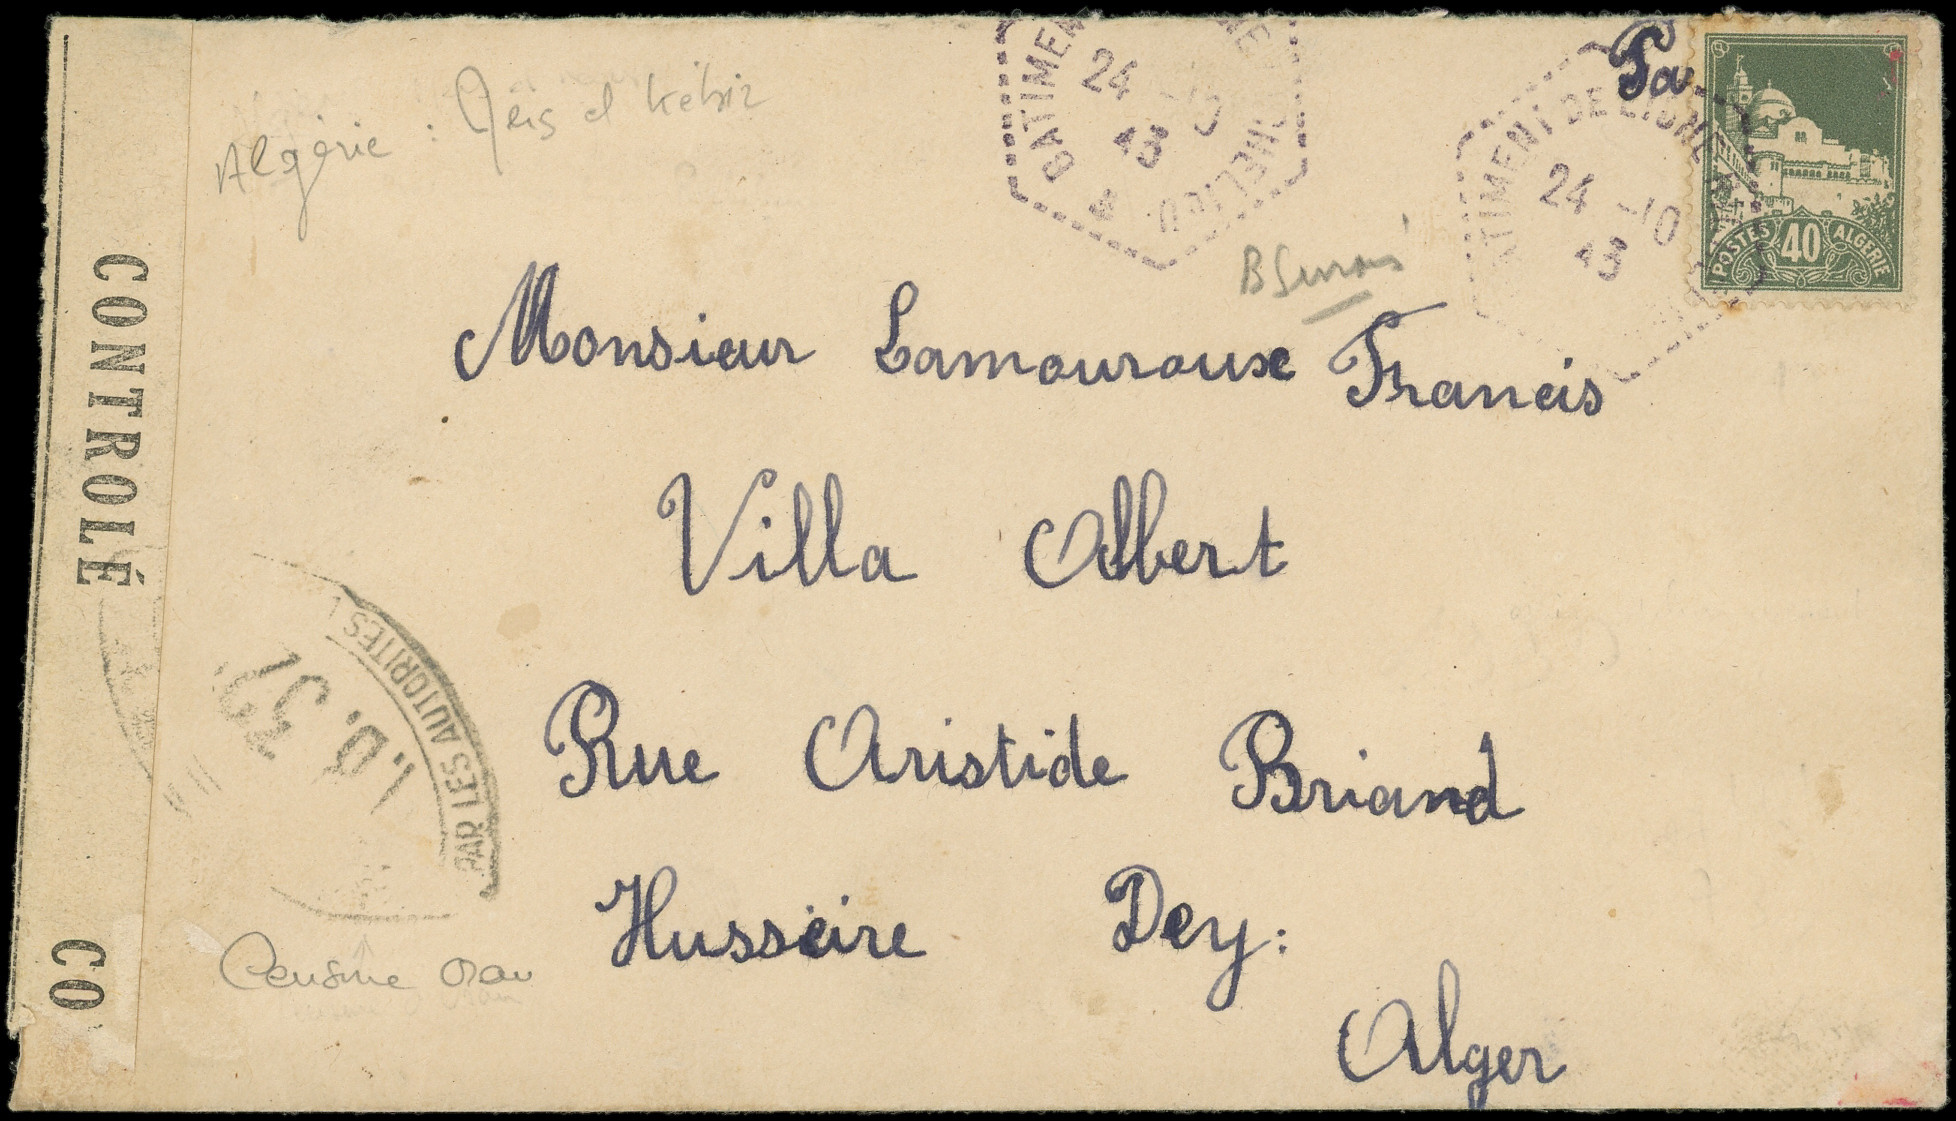 Algérie : Mers el kébir
BATIMEN
NE
24 -10
43
RICHELIEU
*
Pa
TIMENT DE LIGNE
24 -10
43
POSTES 40 ALGERIE
Monsieur Lamouroux Francis
Villa Albert
Rue Aristide Briand
Husseire Dey:
Alger
CONTROLÉ
CO
PAR LES AUTORITES
I.D. 32
Censure Oran